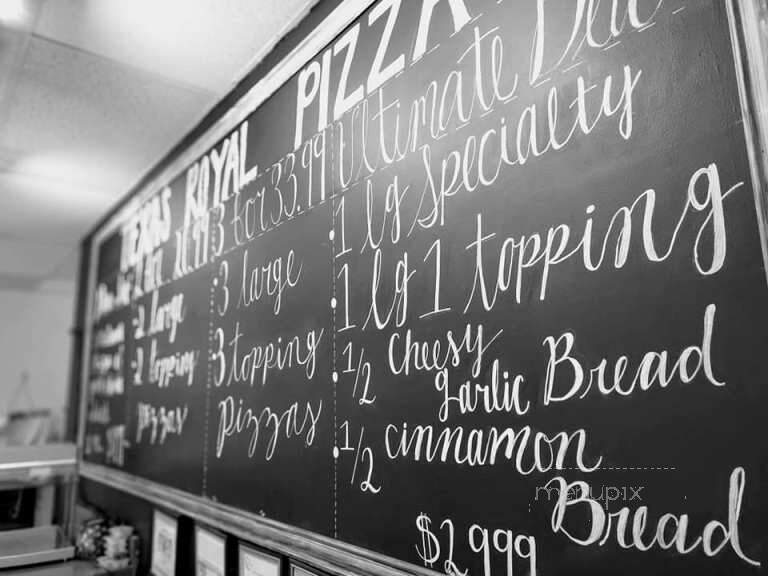 TEXAS ROYAL PIZZA
2 for
2 large
2 topping
pizzas
3 for 33.99
3 large
3 topping
pizzas
Ultimate
1 lg Specialty
1 lg 1 topping
1/2 cheesy
garlic Bread
1/2 cinnamon
Bread
$2999
menupix